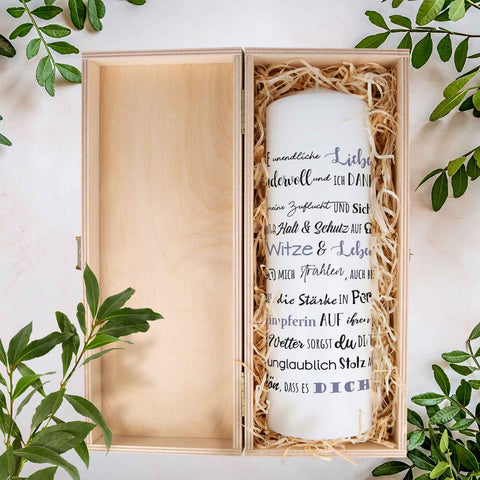 E unendliche Liebe
ndervoll und ICH DANK
meine Zuflucht UND Sich
Halt & Schutz AUF
Witze & Leben
MICH Strahlen, AUCH
die Stärke IN Per
mpferin AUF ihren
Wetter SORGST du DI
unglaublich Stolz A
ön, DASS ES DICH